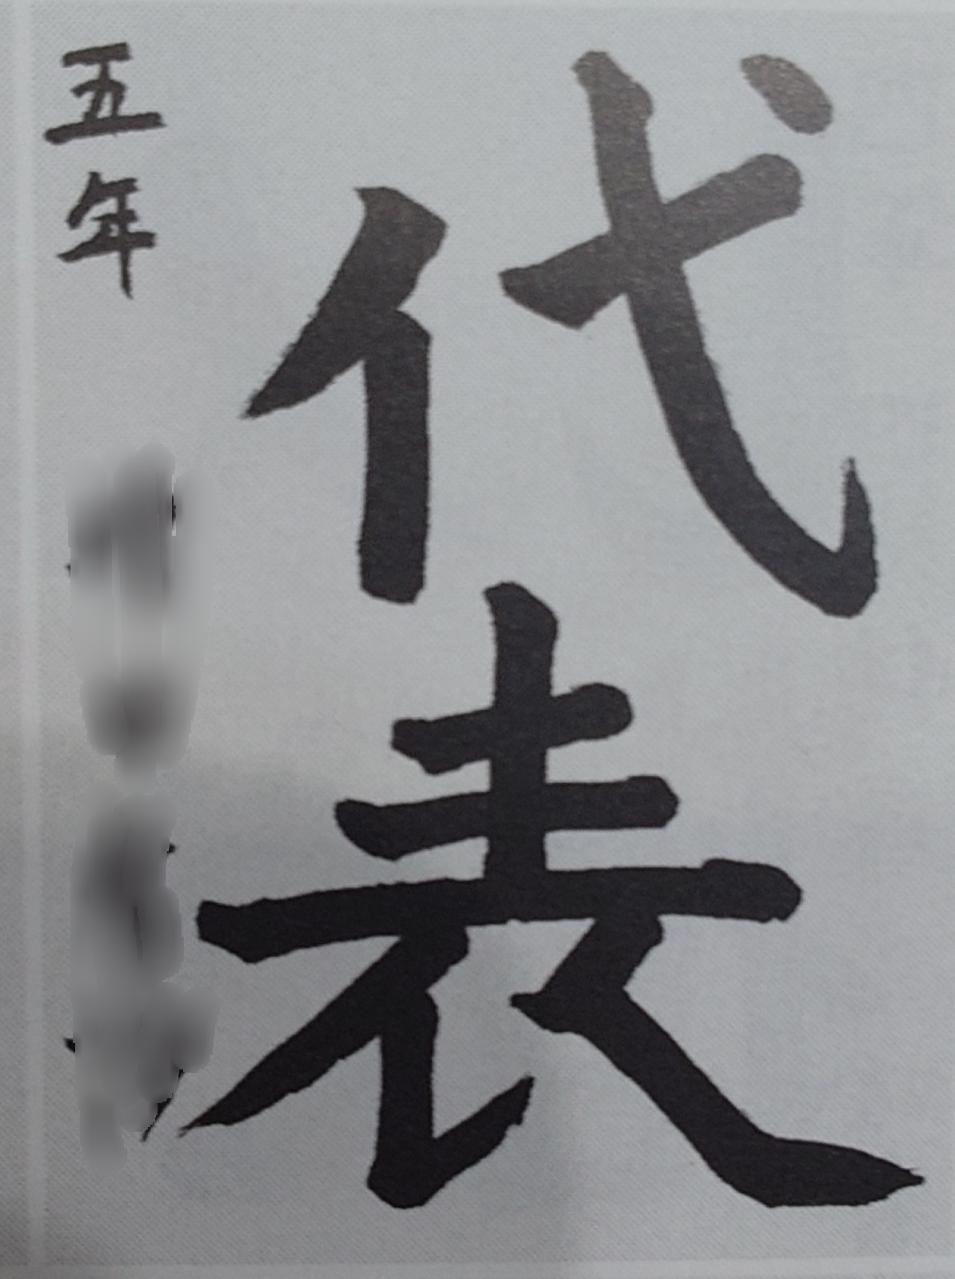 代表
五年